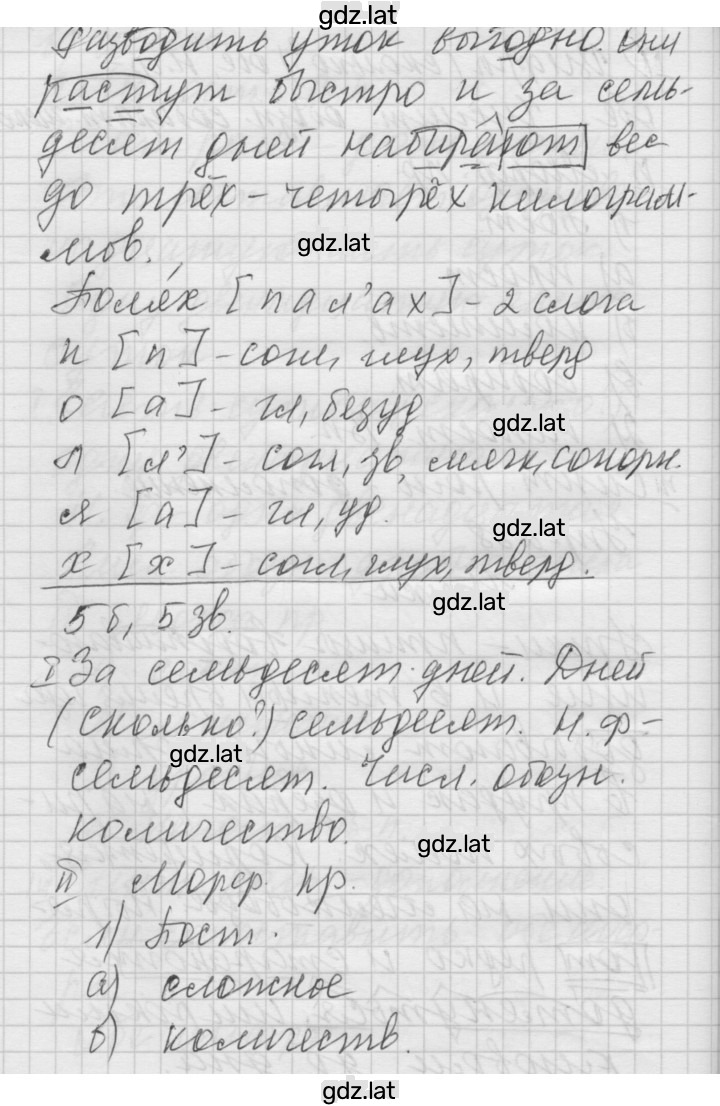 gdz.lat
Разводить уток выгодно. Они
растут быстро и за семь-
десят дней набирают вес
до трёх-четырёх килограм-
мов.
gdz.lat
Поля́х [пал'ах] - 2 слога
п [п] - согл, глух, тверд
о [а] - гл, безуд
gdz.lat
л [л'] - согл, зв, мягк, сонорн.
я [а] - гл, уд.
gdz.lat
х [х] - согл, глух, тверд.
gdz.lat
5 б, 5 зв.
I За семьдесят дней. Дней
(сколько?) семьдесят. Н.ф-
gdz.lat
семьдесят. Числ. обозн.
количество.
gdz.lat
II Морф. пр.
1) Пост.
а) сложное
в) количеств.
gdz.lat